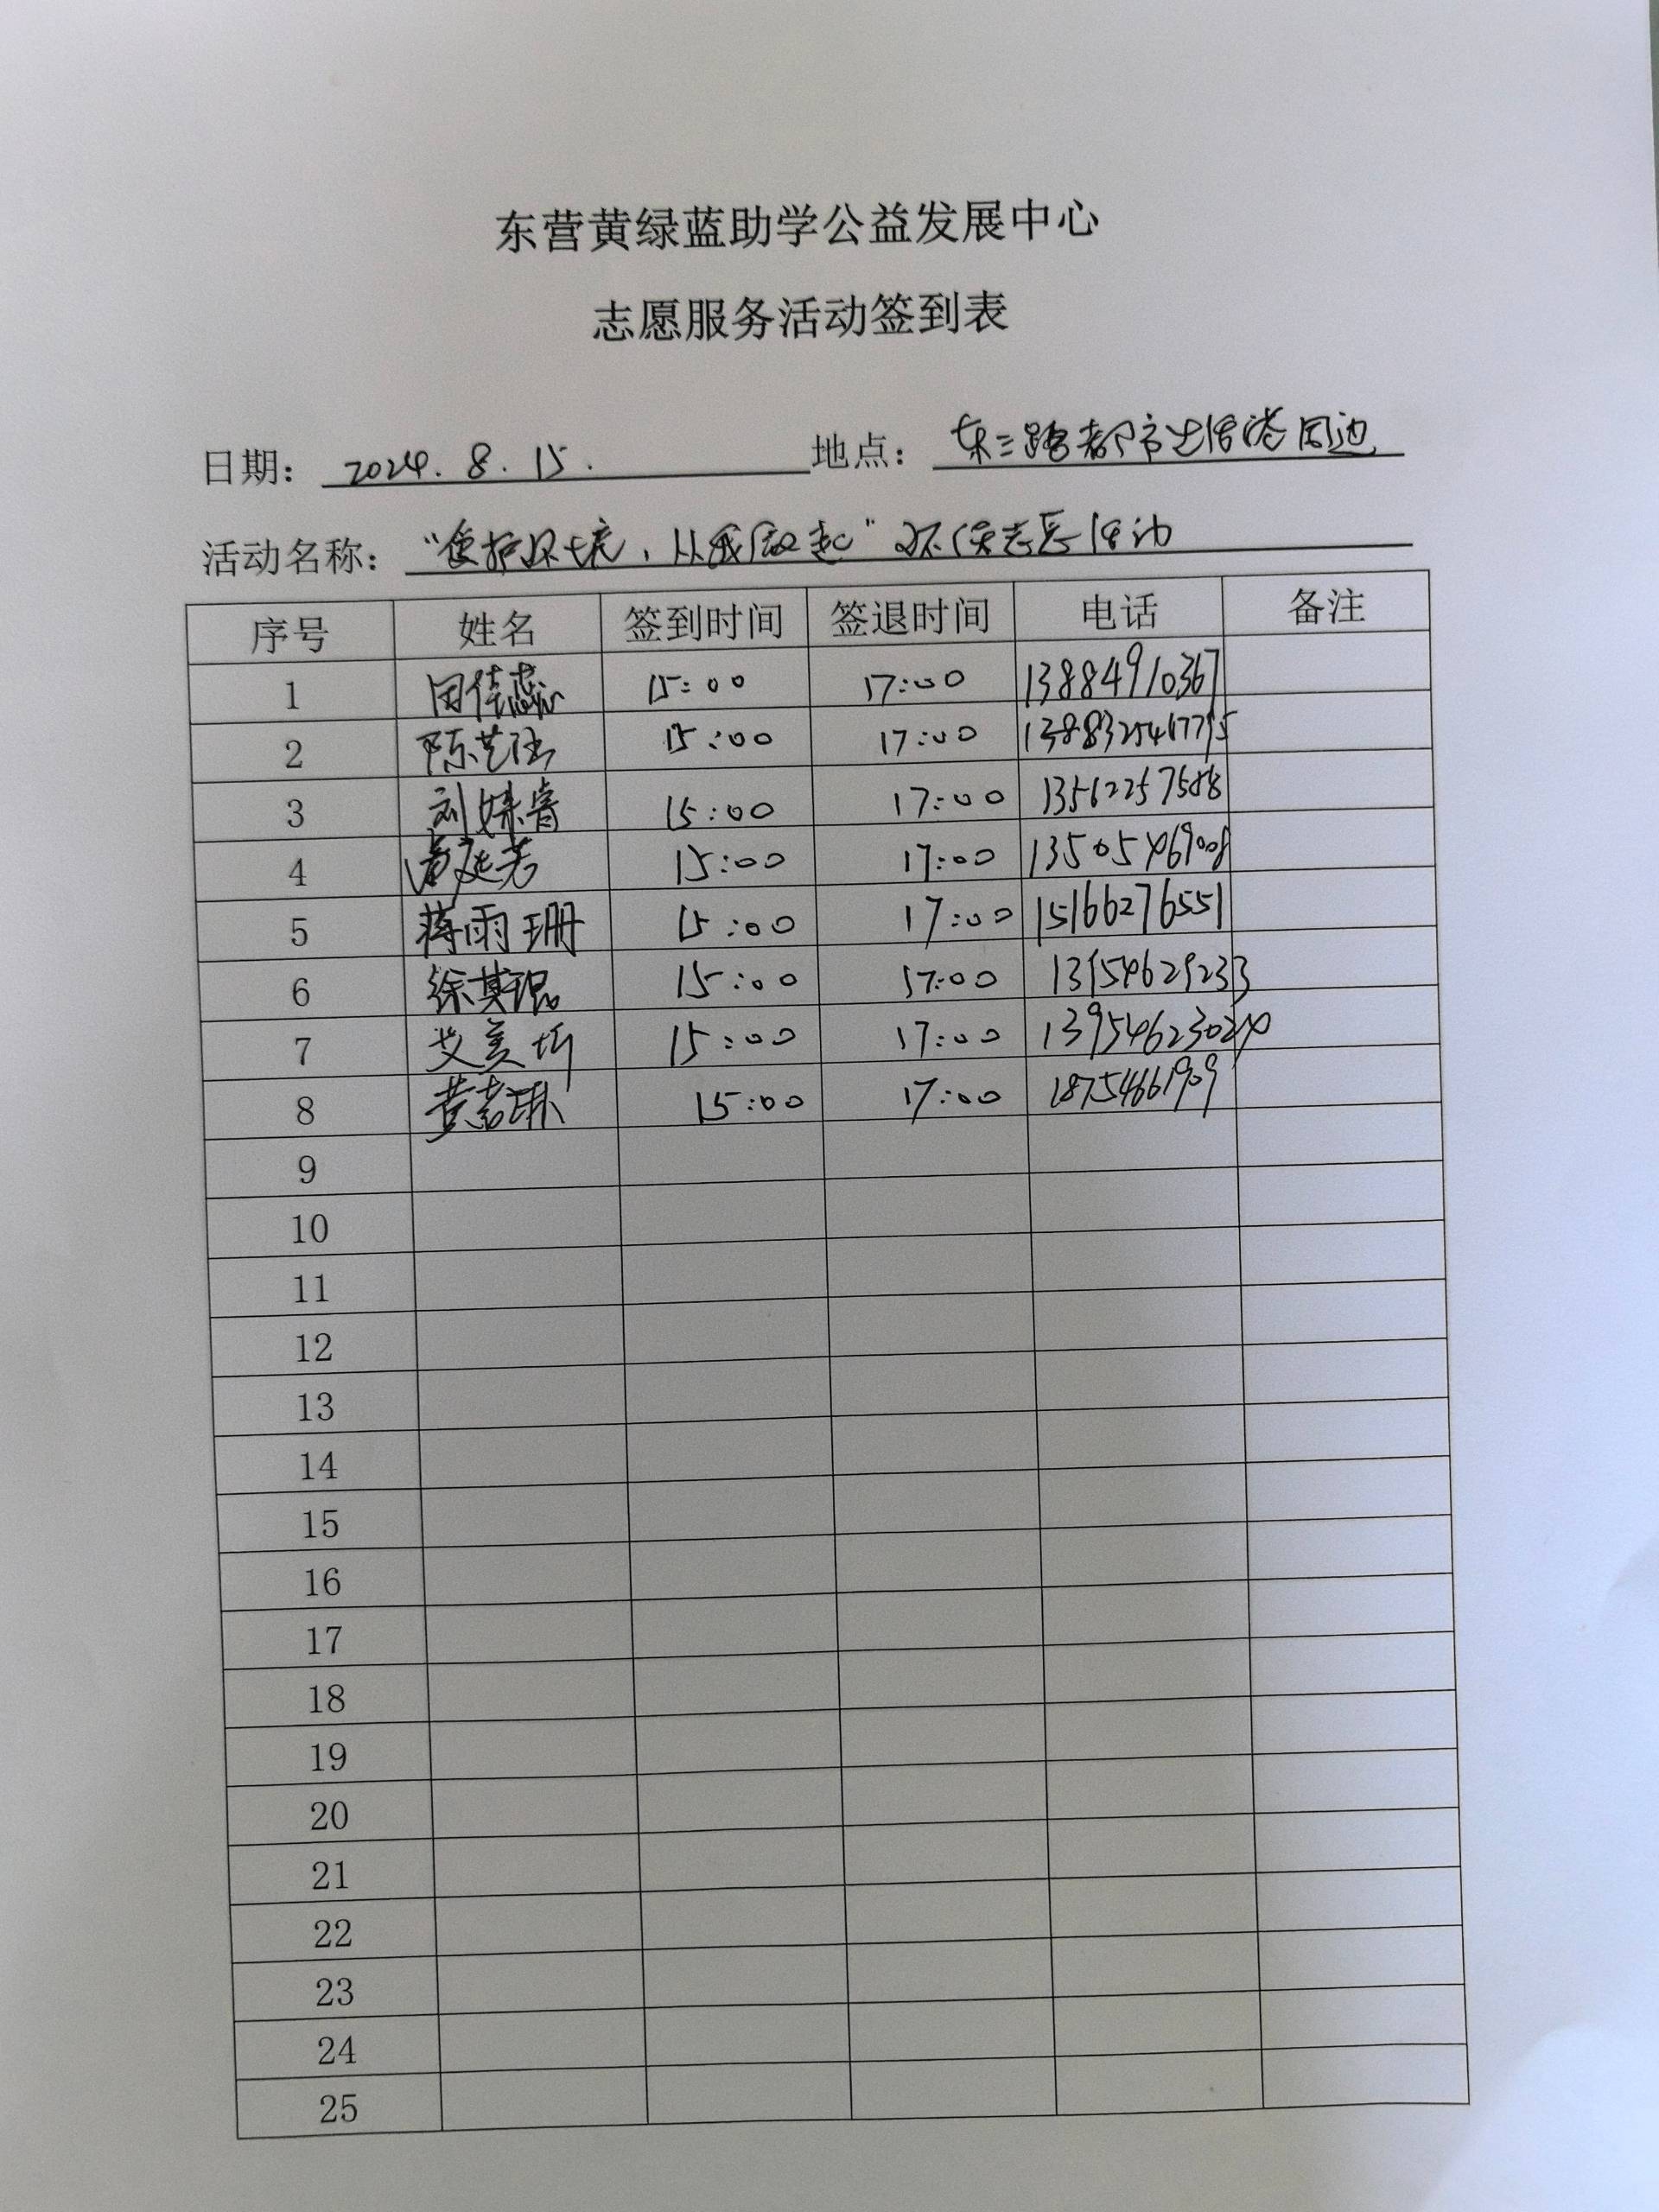 东营黄绿蓝助学公益发展中心
志愿服务活动签到表
日期： 2024.8.15. 地点： 东三路都市生活港周边
活动名称： “爱护环境，从我做起”环保志愿活动
序号 姓名 签到时间 签退时间 电话 备注
1 田佳蕊 15:00 17:00 13884910367
2 陈艺 15:00 17:00
3 刘姝睿 15:00 17:00 13562257588
4 15:00 17:00 13505469008
5 蒋雨珊 15:00 17:00 15166276551
6 徐其琨 15:00 17:00 13954629233
7 艾美圻 15:00 17:00
8 黄嘉琳 15:00 17:00 18754661909
9
10
11
12
13
14
15
16
17
18
19
20
21
22
23
24
25